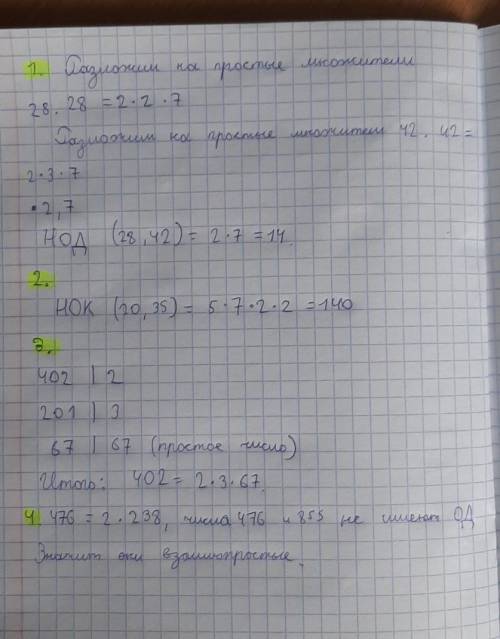 1. Разложим на простые множители
28. 28 = 2·2·7
Разложим на простые множители 42. 42 =
2·3·7
·2,7
НОД (28,42) = 2·7 = 14.
2.
НОК (20,35) = 5·7·2·2 = 140
3.
402 | 2
201 | 3
67 | 67 (простое число)
Итого: 402 = 2·3·67.
4. 476 = 2·238, числа 476 и 855 не имеют ОД
Значит они взаимопростые.